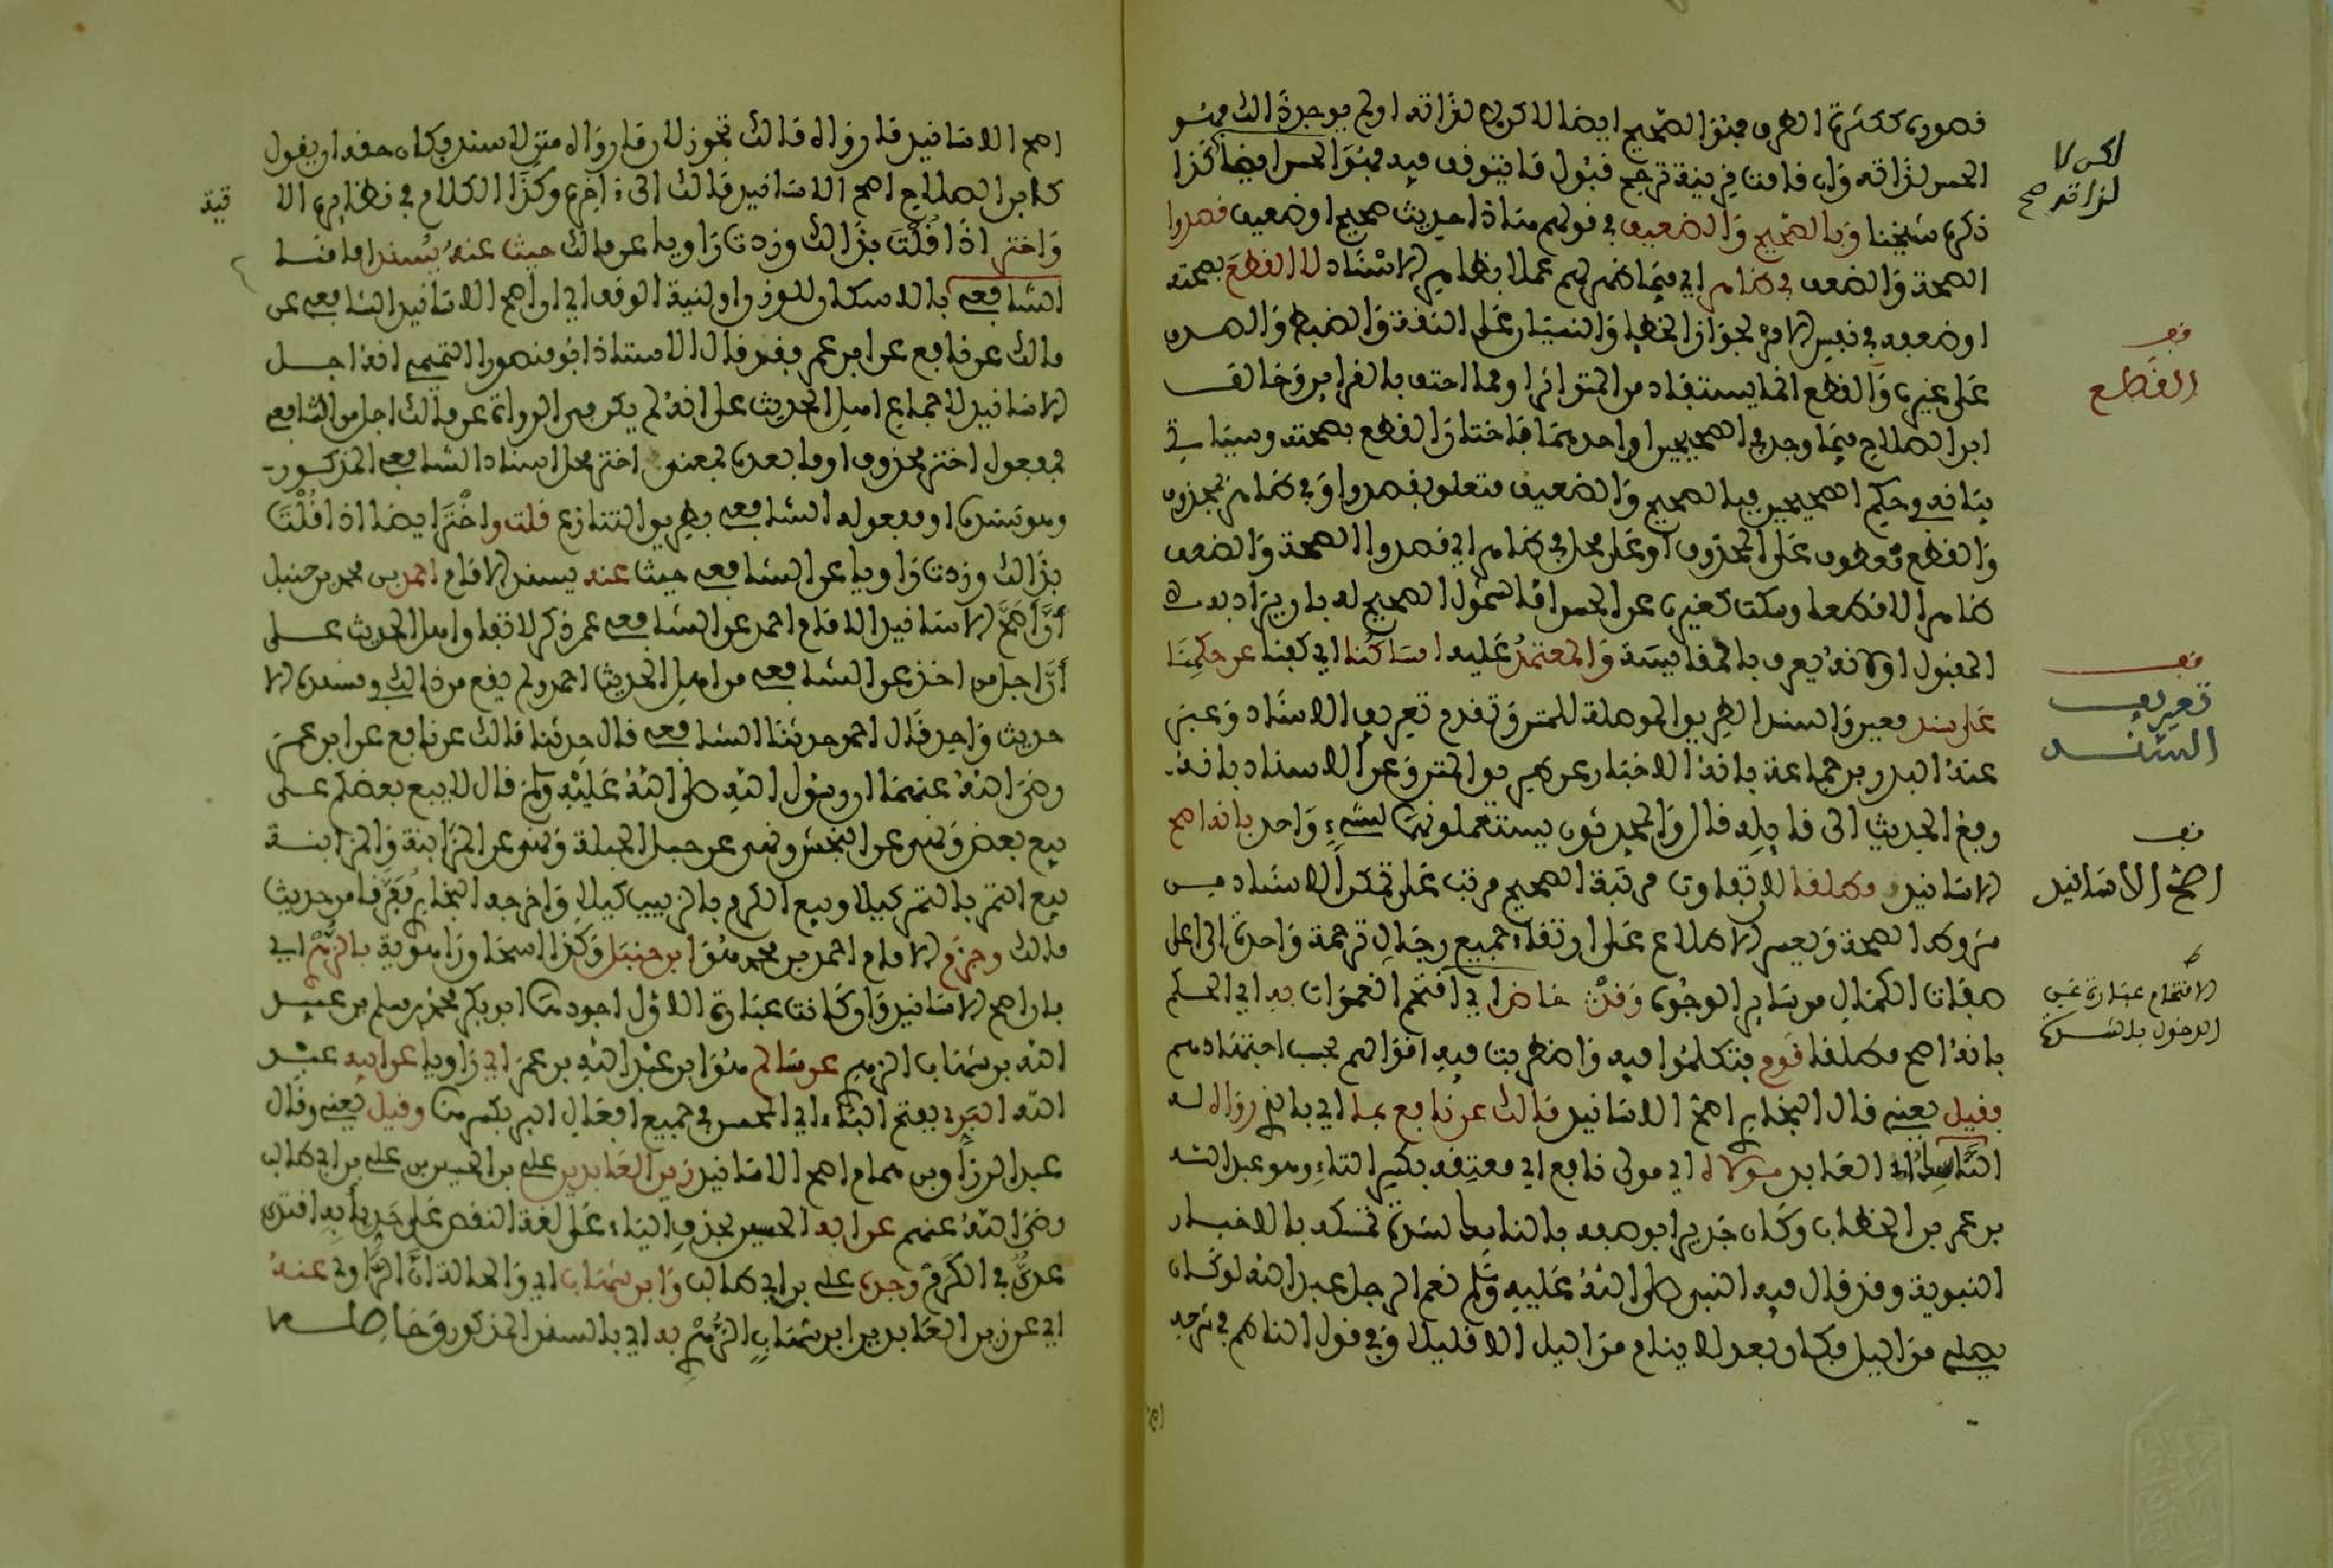 قصوره ككثرة الطرق فهو الصحيح ايضا لاكن لا لذاته او لم يوجد ذالك فهو
الحسن لذاته وان قامت قرينة ترجح قبول ما يتوقف فيه فهو الحسن ايضا كذا
ذكره شيخنا وبالصحيح والضعيف في قولهم هذا حديث صحيح او ضعيف قصدوا
الصحة والضعف في ظاهر اي فيما ظهر لهم عملا بظاهر الاسناد لا القطع بصحته
او ضعفه في نفس الامر لجواز الخطإ والنسيان على الثقة والضبط والصدق
على غيره والقطع انما يستفاد من المتواتر او مما احتف بالقراين وخالف
ابن الصلاح فيما وجد في الصحيحين او احدهما فاختار القطع بصحته وسياتي
بيانه في حكم الصحيحين فبالصحيح والضعيف متعلق بقصدوا وفي ظاهر بمحذوف
والقطع معطوف على المحذوف او على محل في ظاهر اي قصدوا الصحة والضعف
ظاهرا لا قطعا وسكت كغيره عن الحسن اما لشمول الصحيح له بان يراد به
المقبول او لانه يعرف بالمقايسة والمعتمد عليه امساكنا اي كفنا عن حكمنا
على سند معين والسند الطريق الموصلة للمتن وتقدم تعريف الاسناد وعبر
عنه البدر بن جماعة بانه الاخبار عن طريق المتن وعن الاسناد بانه
رفع الحديث الى قايله قال والمحدثون يستعملونهما لشيء واحد بانه اصح
الاسانيد مطلقا لان تفاوت مرتبة الصحيح مرتب على تمكن الاسناد من
شروط الصحة ويعسر الاطلاع على ارتقاء جميع رجال ترجمة واحدة الى اعلى
صفات الكمال من ساير الوجوه وقد خاض اي اقتحم الغمرات به اي الحكم
بانه اصح مطلقا قوم فتكلموا فيه واضطربت فيه اقوالهم بحسب اجتهادهم
فقيل يعني قال البخاري اصح الاسانيد مالك عن نافع بما اي بالذي رواه له
الناسك اي العابد مولاه اي مولى نافع اي معتقه بكسر التاء وهو عبد الله
بن عمر بن الخطاب وكان جديرا بوصفه بالناسك لشدة تمسكه بالاخبار
النبوية وقد قال فيه النبي صلى الله عليه وسلم نعم الرجل عبد الله لو كان
يصلي من الليل فكان بعد لا ينام من الليل الا قليلا وفي قول الناظم في شرحه
لكن لا
لذاته صح
قف
القطع
قف
تعريف
السند
قف
اصح الاسانيد
ط
الاقتحام عبارة عن
الدخول بالشدة
اصح الاسانيد ما رواه مالك تجوز لان ما رواه متن لا سند فكان حقه ان يقول
كابن الصلاح اصح الاسانيد مالك الى ءاخره وكذا الكلام في نظايره الا
تية
واختر اذا قلت بذالك وزدت راويا عن مالك حيث عنه يسند امامنا
الشافعي بالاسكان للوزن او لنية الوقف اي ان اصح الاسانيد الشافعي عن
مالك عن نافع عن ابن عمر فقد قال الاستاذ ابو منصور التميمي انه اجل
الاسانيد لاجماع اهل الحديث على انه لم يكن في الرواة عن مالك اجل من الشافعي
فمفعول اختر محذوف او ما بعده بمعنى اختر محل اسناد الشافعي المذكور
وهو تسنده او مفعوله الشافعي بطريق التنازع قلت واختر ايضا اذا قلت
بذالك وزدت راويا عن الشافعي حيث عنه يسند الامام احمد بن محمد بن حنبل
ان اصح الاسانيد الامام احمد عن الشافعي عمن ذكر لاتفاق اهل الحديث على
ان اجل من اخذ عن الشافعي من اهل الحديث احمد ولم يقع من ذالك في مسنده الا
حديث واحد قال احمد حدثنا الشافعي قال حدثنا مالك عن نافع عن ابن عمر
رضي الله عنهما ان رسول الله صلى الله عليه وسلم قال لا يبع بعضكم على
بيع بعض ونهى عن النجش ونهى عن حبل الحبلة ونهى عن المزابنة والمزابنة
بيع التمر بالتمر كيلا وبيع الكرم بالزبيب كيلا واخرجه البخاري مفرقا من حديث
مالك وجزم الامام احمد بن محمد هو ابن حنبل وكذا اسحاق بن راهويه بالزهري اي
بان اصح الاسانيد وان كانت عبارة الاول اجود هما ابو بكر محمد بن مسلم بن عبيد
الله بن شهاب الزهري عن سالم هو ابن عبد الله بن عمر اي راويا عن ابيه عبد
الله البر بفتح الباء اي المحسن في جميع افعال البر بكسرها وقيل يعني وقال
عبد الرزاق بن همام اصح الاسانيد زين العابدين علي بن الحسين بن علي بن ابي طالب
رضي الله عنهم عن ابه الحسين بحذف الياء على لغة النقص على حد بابه اقتدى
عدي في الكرم وجده علي بن ابي طالب وابن شهاب اي والحالة ان الراوي عنه
اي عن زين العابدين ابن شهاب الزهري به اي بالسند المذكور وحاصله